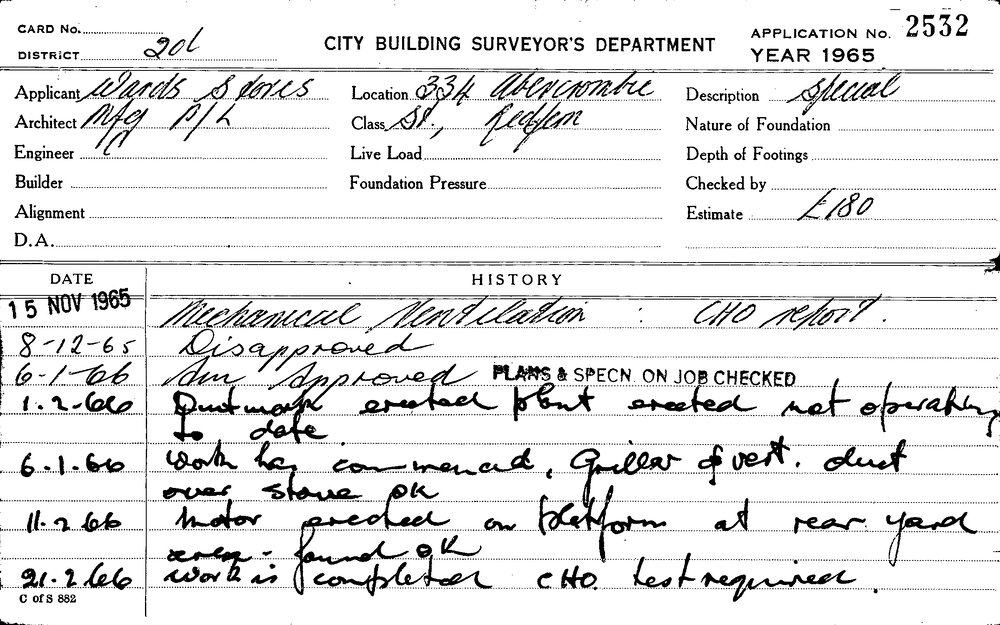 CARD No.
APPLICATION No. 2532
DISTRICT 20L
CITY BUILDING SURVEYOR'S DEPARTMENT
YEAR 1965
Applicant Wards Stores
Location 334 Abercrombie
Description Special
Architect Mfg P/L
Class St., Redfern
Nature of Foundation
Engineer
Live Load
Depth of Footings
Builder
Foundation Pressure
Checked by
Alignment
Estimate £180
D.A.
DATE HISTORY
15 NOV 1965 Mechanical Ventilation : CHO report.
8-12-65 Disapproved
6-1-66 Approved PLANS & SPECN. ON JOB CHECKED
1.2.66 Ductwork erected plant erected not operating
to date
6.1.66 work has commenced, Griller & vert. duct
over stove OK
11.2.66 motor erected on platform at rear yard
area - found OK
21.2.66 work is completed CHO. test required.
C of S 882